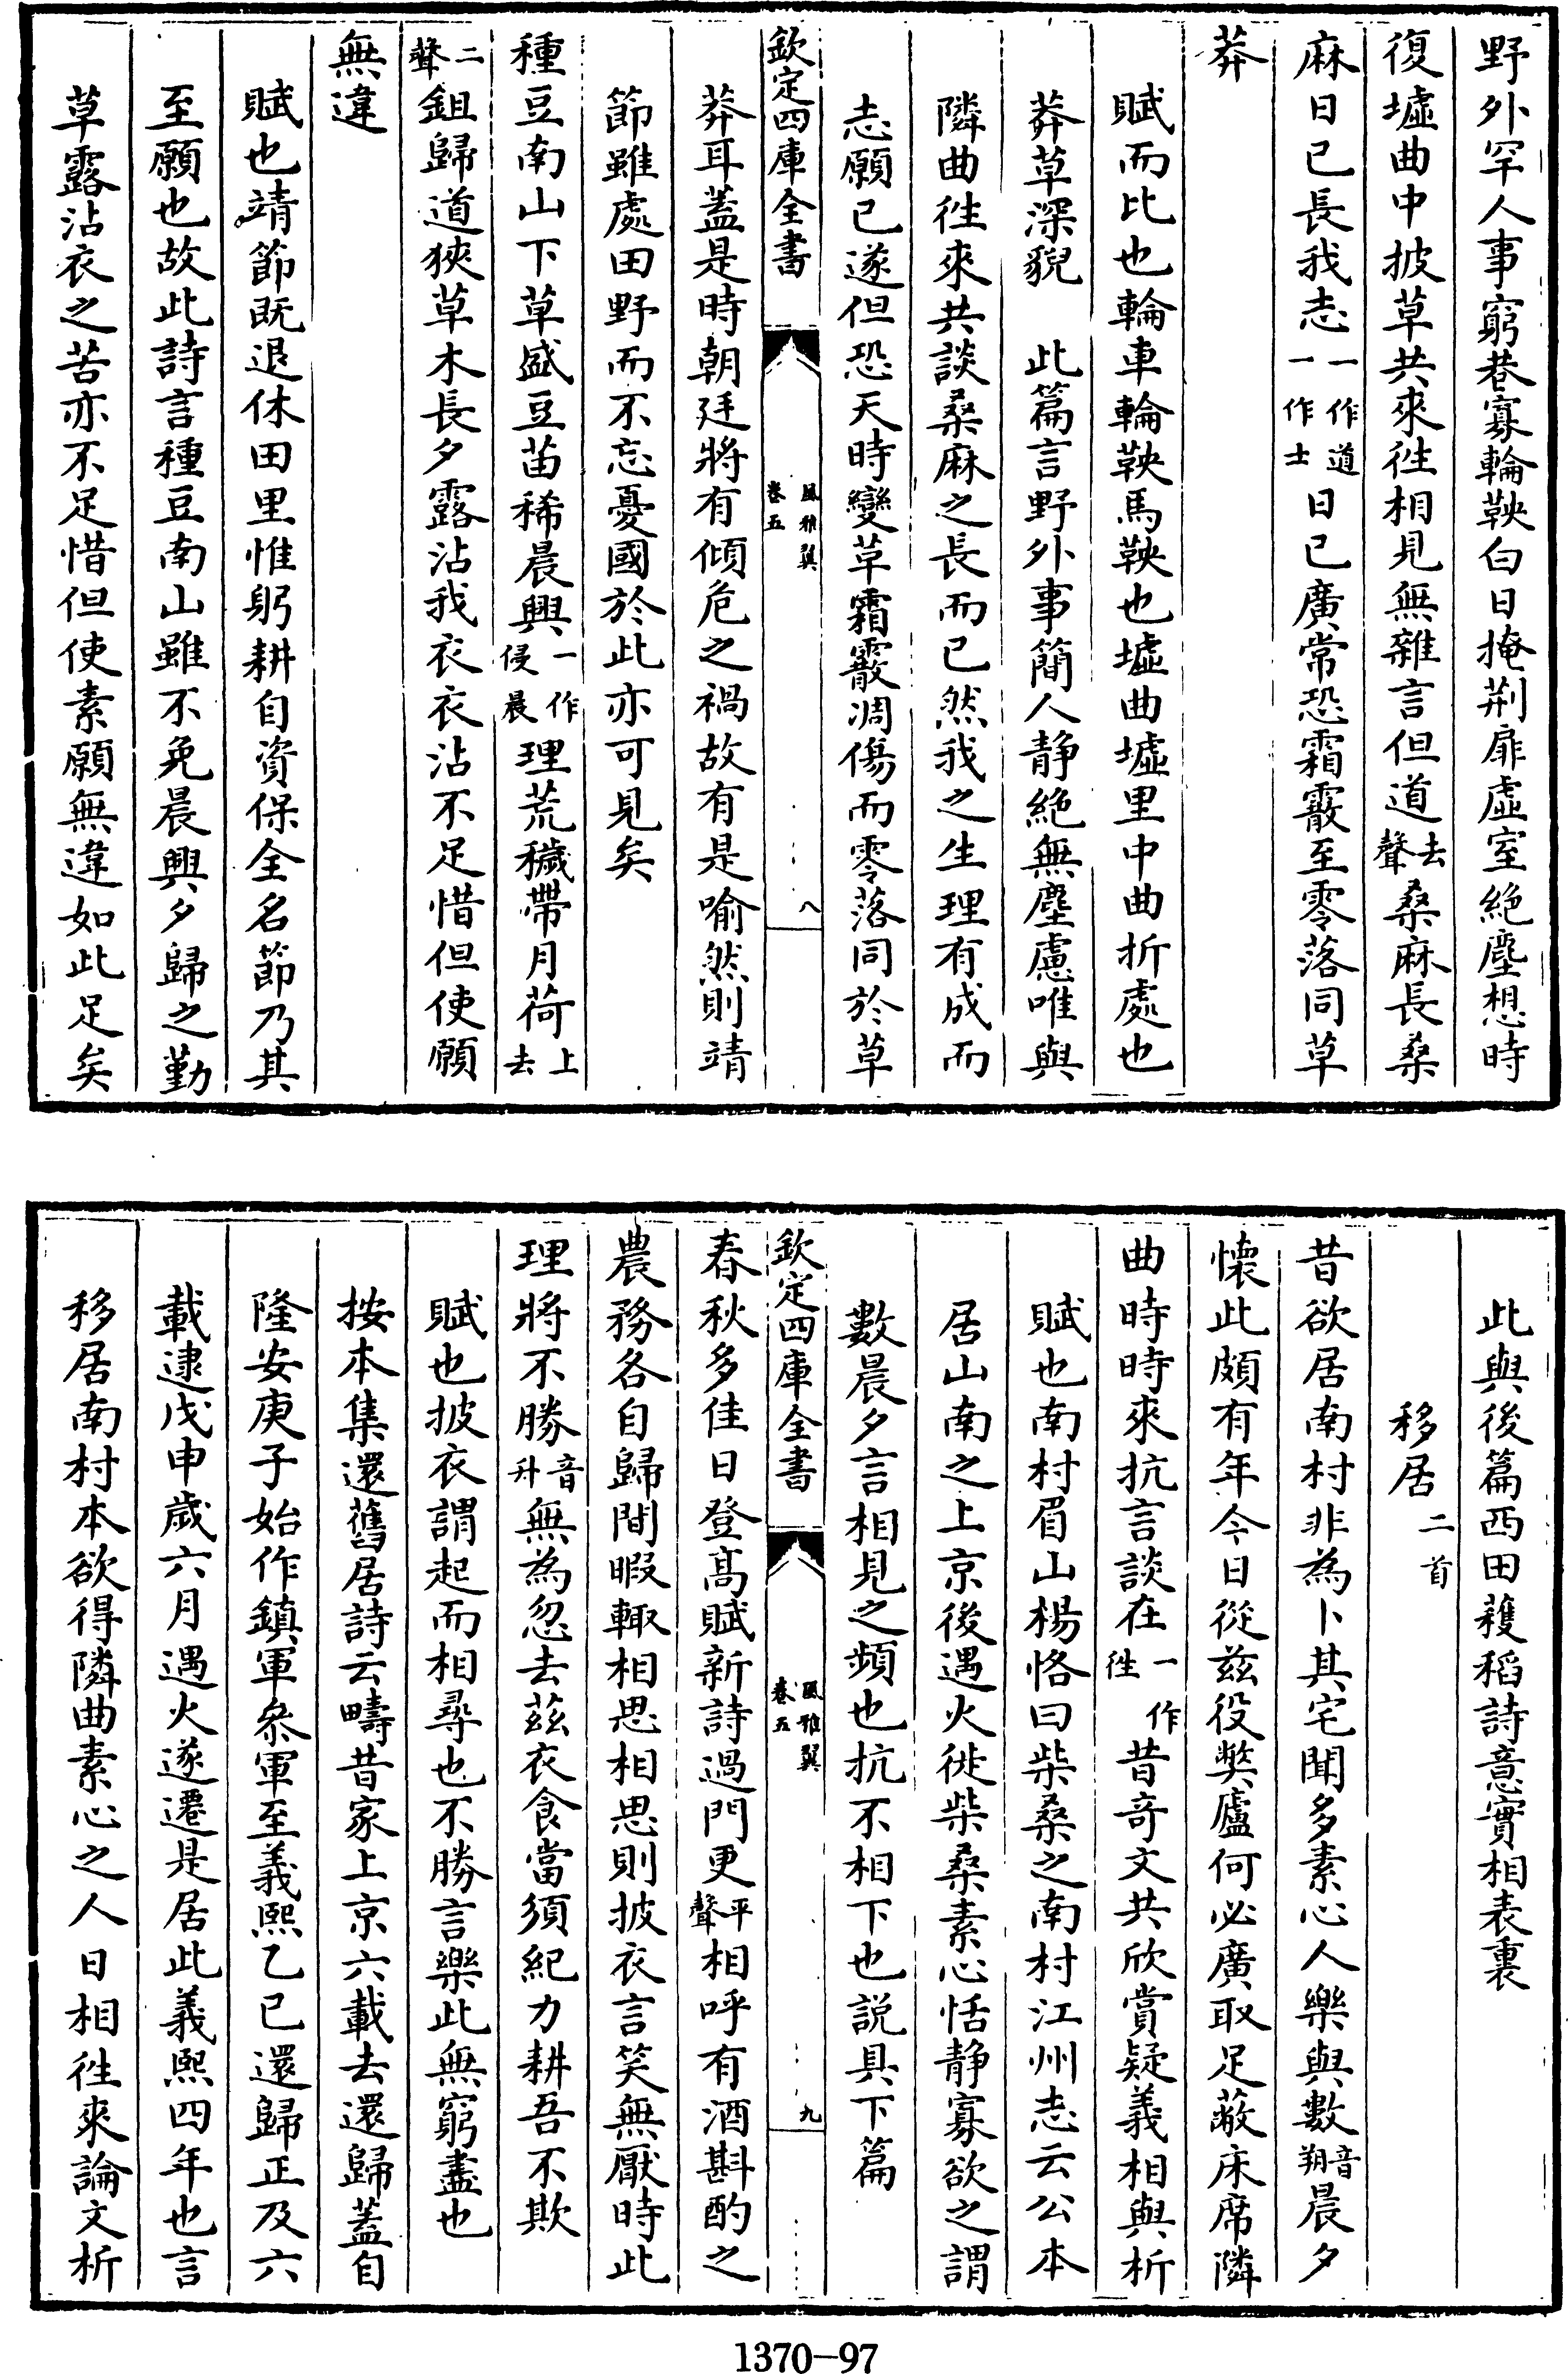 野外罕人事窮巷寡輪鞅白日掩荆扉虛室絶塵想時
復墟曲中披草共來徃相見無雜言但道去聲桑麻長桑
麻日已長我志一作道一作士日已廣常恐霜霰至零落同草
莽
賦而比也輪車輪鞅馬鞅也墟曲墟里中曲折處也
莽草深貌　此篇言野外事簡人静絶無塵慮唯與
隣曲徃來共談桑麻之長而已然我之生理有成而
志願已遂但恐天時變革霜霰凋傷而零落同於草
欽定四庫全書
風雅翼
卷五
八
莽耳蓋是時朝廷將有傾危之禍故有是喻然則靖
節雖處田野而不忘憂國於此亦可見矣
種豆南山下草盛豆苗稀晨興一作侵晨理荒穢帶月荷上去
二聲鉏歸道狹草木長夕露沾我衣衣沾不足惜但使願
無違
賦也靖節既退休田里惟躬耕自資保全名節乃其
至願也故此詩言種豆南山雖不免晨興夕歸之勤
草露沾衣之苦亦不足惜但使素願無違如此足矣
此與後篇西田穫稻詩意實相表裏
移居二首
昔欲居南村非為卜其宅聞多素心人樂與數音朔晨夕
懐此頗有年今日從兹役獘廬何必廣取足蔽床席隣
曲時時來抗言談在一作徃昔奇文共欣賞疑義相與析
賦也南村眉山楊恪曰柴桑之南村江州志云公本
居山南之上京後遇火徙柴桑素心恬静寡欲之謂
數晨夕言相見之頻也抗不相下也説具下篇
欽定四庫全書
風雅翼
卷五
九
春秋多佳日登髙賦新詩過門更平聲相呼有酒斟酌之
農務各自歸間暇輙相思相思則披衣言笑無厭時此
理將不勝音升無為忽去兹衣食當須紀力耕吾不欺
賦也披衣謂起而相尋也不勝言樂此無窮盡也
按本集還舊居詩云疇昔家上京六載去還歸蓋自
隆安庚子始作鎮軍叅軍至義熙乙巳還歸正及六
載逮戊申歲六月遇火遂遷是居此義熙四年也言
移居南村本欲得隣曲素心之人日相徃來論文析
1370-97